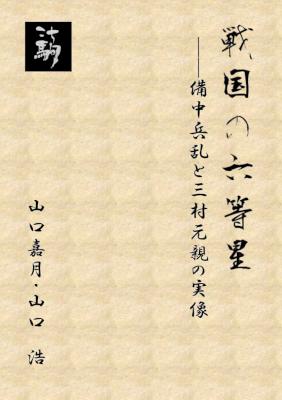 戦国の六等星
――備中兵乱と三村元親の実像
山口嘉月・山口 浩